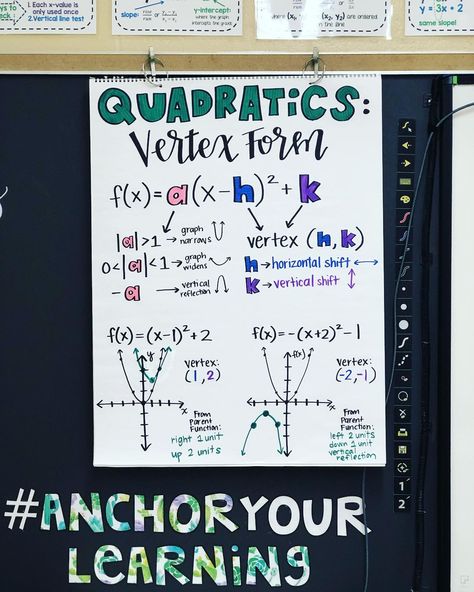 1. Each x-value is
only used once
2. Vertical line test
slope
y-intercept
where the graph
intercepts the y-axis
(x₁, y₁) (x₂, y₂)
where (x, y) are ordered
y = 3x + 2
same slope
QUADRATICS:
Vertex Form
f(x) = a(x-h)² + k
|a| > 1 → graph narrows
0 < |a| < 1 → graph widens
-a → vertical reflection
vertex (h, k)
h → horizontal shift ↔
k → vertical shift ↕
f(x) = (x-1)² + 2
y
x
vertex:
(1, 2)
From
Parent
Function:
right 1 unit
up 2 units
f(x) = -(x+2)² - 1
f(x)
x
vertex:
(-2, -1)
From
Parent
Function:
left 2 units
down 1 unit
vertical
reflection
1
2
#ANCHOR YOUR
LEARNING